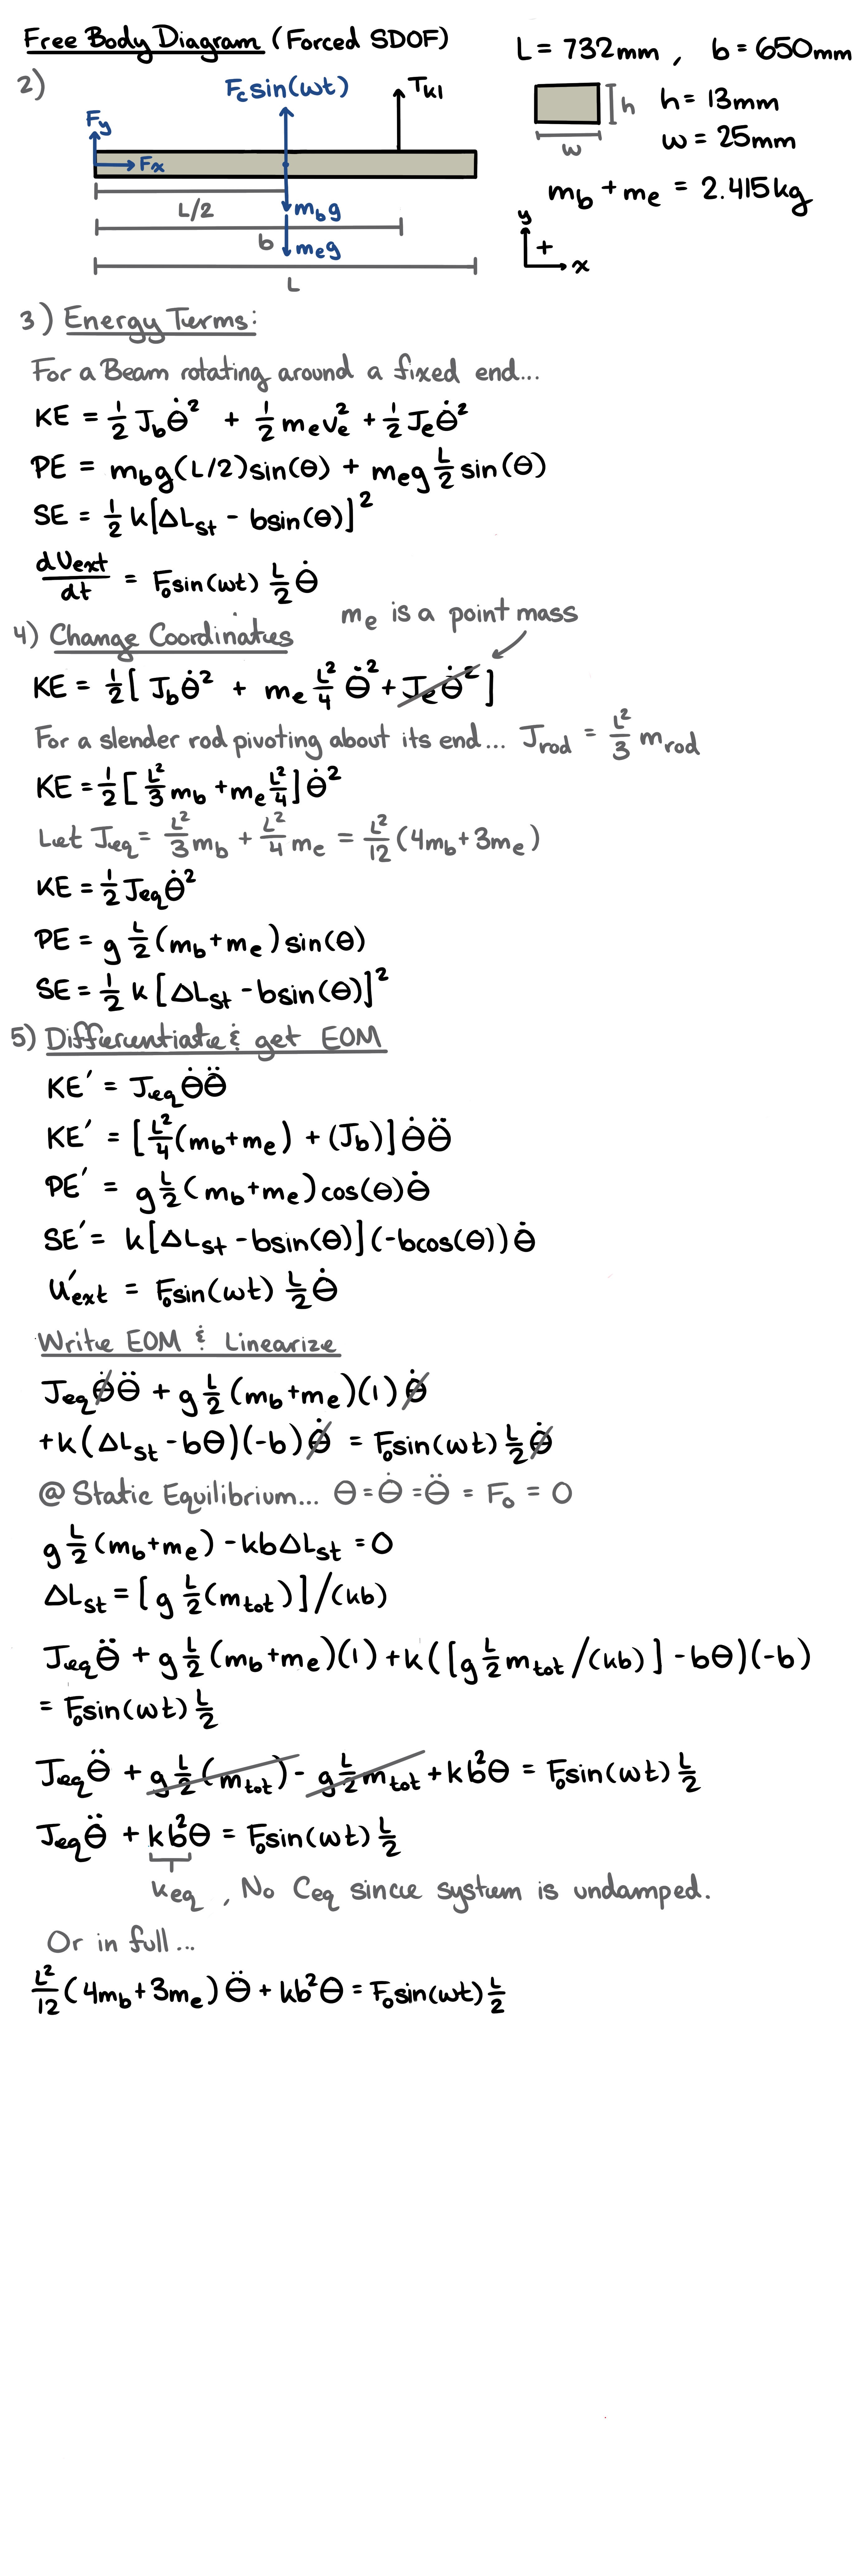 Free Body Diagram (Forced SDOF)
L = 732mm , b = 650mm
2)
F_c sin(wt)
T_k1
h
h = 13mm
w
w = 25mm
F_y
F_x
m_b + m_e = 2.415kg
L/2
m_b g
b
m_e g
L
y
+
x
3) Energy Terms:
For a Beam rotating around a fixed end...
KE = 1/2 J_b θ̇² + 1/2 m_e v_e² + 1/2 J_e θ̇²
PE = m_b g(L/2)sin(θ) + m_e g L/2 sin(θ)
SE = 1/2 k[ΔL_st - bsin(θ)]²
dU_ext/dt = F_o sin(wt) L/2 θ̇
4) Change Coordinates
m_e is a point mass
KE = 1/2 [ J_b θ̇² + m_e L²/4 θ̇² + J_e θ̇² ]
For a slender rod pivoting about its end... J_rod = L²/3 m_rod
KE = 1/2 [ L²/3 m_b + m_e L²/4 ] θ̇²
Let J_eq = L²/3 m_b + L²/4 m_e = L²/12 (4m_b + 3m_e)
KE = 1/2 J_eq θ̇²
PE = g L/2 (m_b + m_e) sin(θ)
SE = 1/2 k [ΔL_st - bsin(θ)]²
5) Differentiate & get EOM
KE′ = J_eq θ̇θ̈
KE′ = [L²/4 (m_b + m_e) + (J_b)] θ̇θ̈
PE′ = g L/2 (m_b + m_e) cos(θ) θ̇
SE′ = k[ΔL_st - bsin(θ)](-bcos(θ)) θ̇
U′_ext = F_o sin(wt) L/2 θ̇
Write EOM & Linearize
J_eq θ̇θ̈ + g L/2 (m_b + m_e)(1) θ̇
+k(ΔL_st - bθ)(-b) θ̇ = F_o sin(wt) L/2 θ̇
@ Static Equilibrium... θ = θ̇ = θ̈ = F_o = 0
g L/2 (m_b + m_e) - kbΔL_st = 0
ΔL_st = [g L/2 (m_tot)]/(kb)
J_eq θ̈ + g L/2 (m_b + m_e)(1) + k([g L/2 m_tot/(kb)] - bθ)(-b)
= F_o sin(wt) L/2
J_eq θ̈ + g L/2 (m_tot) - g L/2 m_tot + kb²θ = F_o sin(wt) L/2
J_eq θ̈ + kb²θ = F_o sin(wt) L/2
k_eq , No C_eq since system is undamped.
Or in full...
L²/12 (4m_b + 3m_e) θ̈ + kb²θ = F_o sin(wt) L/2